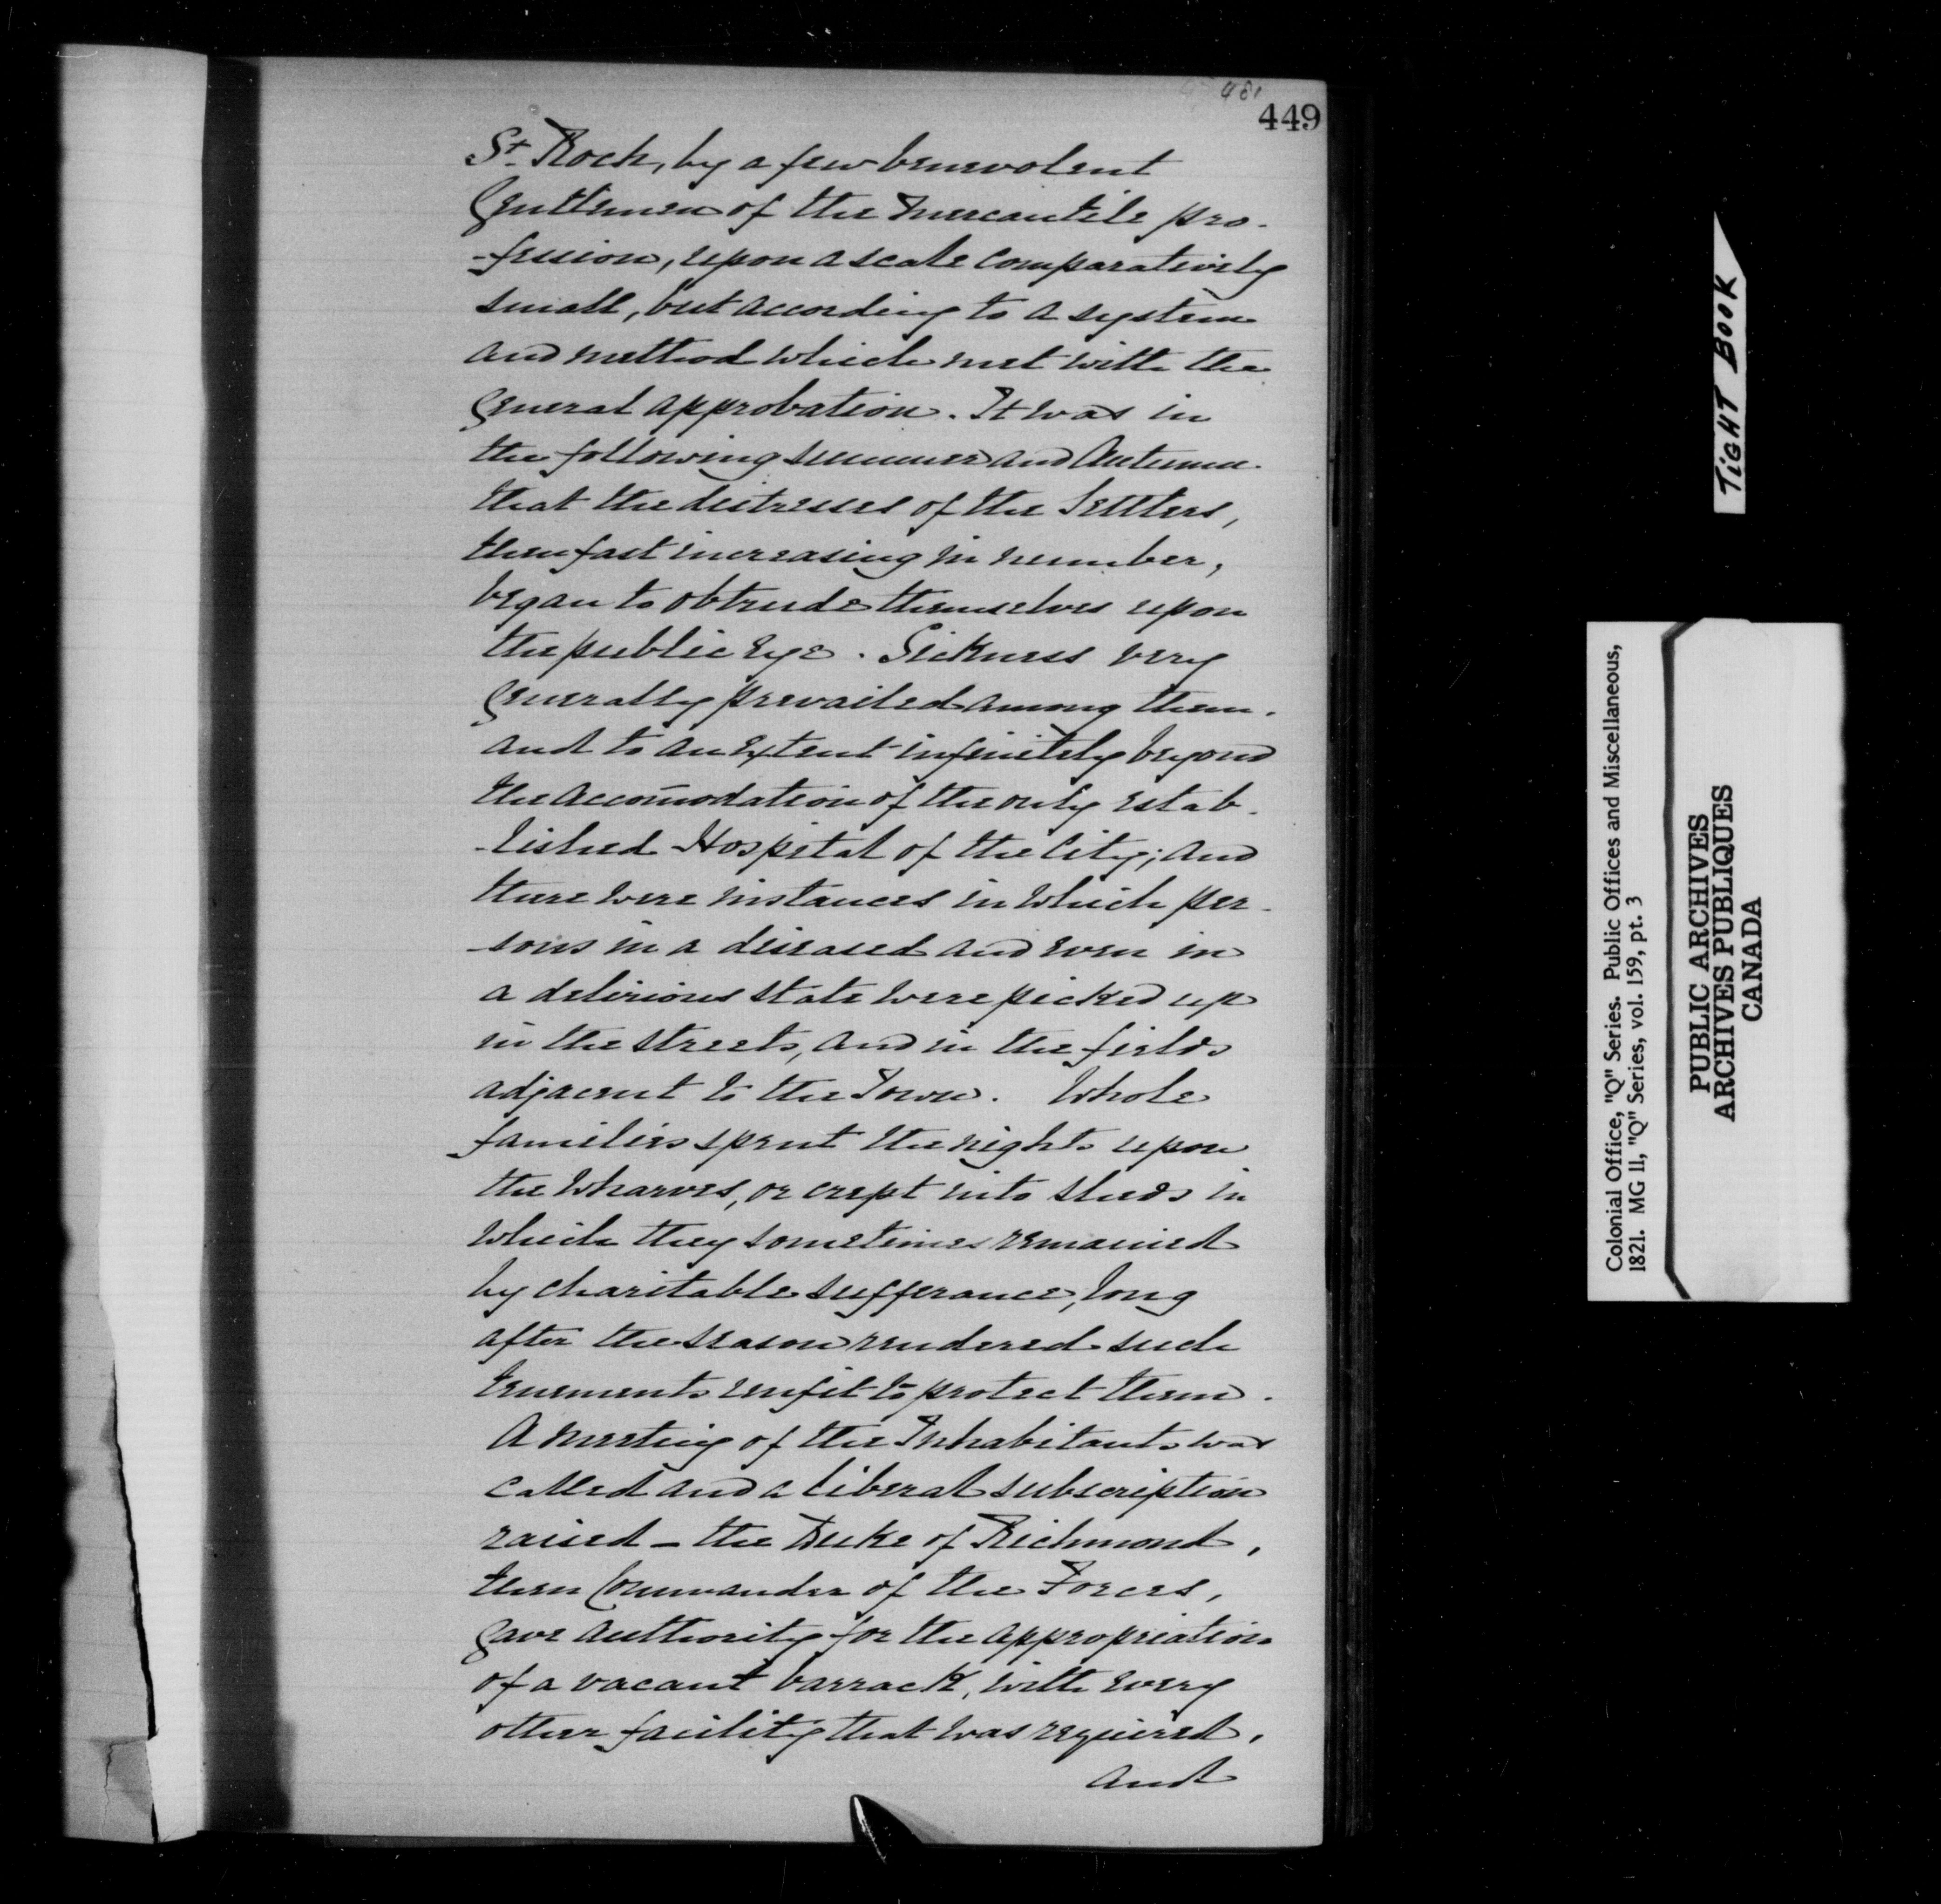 481
449
St. Roch, by a few benevolent
Gentlemen of the Mercantile pro-
-fession, upon a scale comparatively
small, but according to a system
and method which met with the
General approbation. It was in
the following summer and Autumn
that the distresses of the Settlers,
then fast increasing in number,
began to obtrude themselves upon
the public Eye. Sickness very
Generally prevailed among them.
and to an Extent infinitely beyond
the accom̄odation of the only Estab-
-lished Hospital of the City; and
there were instances in which per-
-sons in a diseased and even in
a delirious state were picked up
in the streets, and in the fields
adjacent to the Town. Whole
families spent the nights upon
the Wharves, or crept into sheds in
which they sometimes remained
by charitable sufferance, long
after the season rendered such
tenements unfit to protect them.
A meeting of the Inhabitants was
called and a liberal subscription
raised – the Duke of Richmond,
then Commander of the Forces,
Gave authority for the appropriation
of a vacant barrack, with every
other facility that was required,
and
TIGHT BOOK
Colonial Office, "Q" Series. Public Offices and Miscellaneous,
1821. MG 11, "Q" Series, vol. 159, pt. 3
PUBLIC ARCHIVES
ARCHIVES PUBLIQUES
CANADA